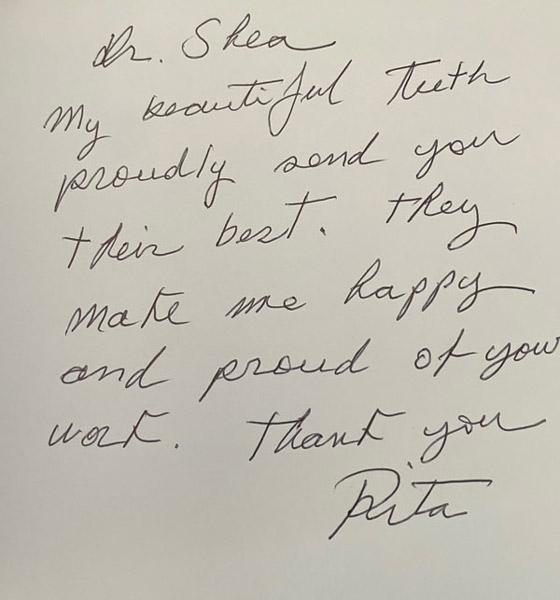 Dr. Shea
My beautiful Teeth
proudly send you
their best. they
make me happy
and proud of your
work. Thank you
Rita